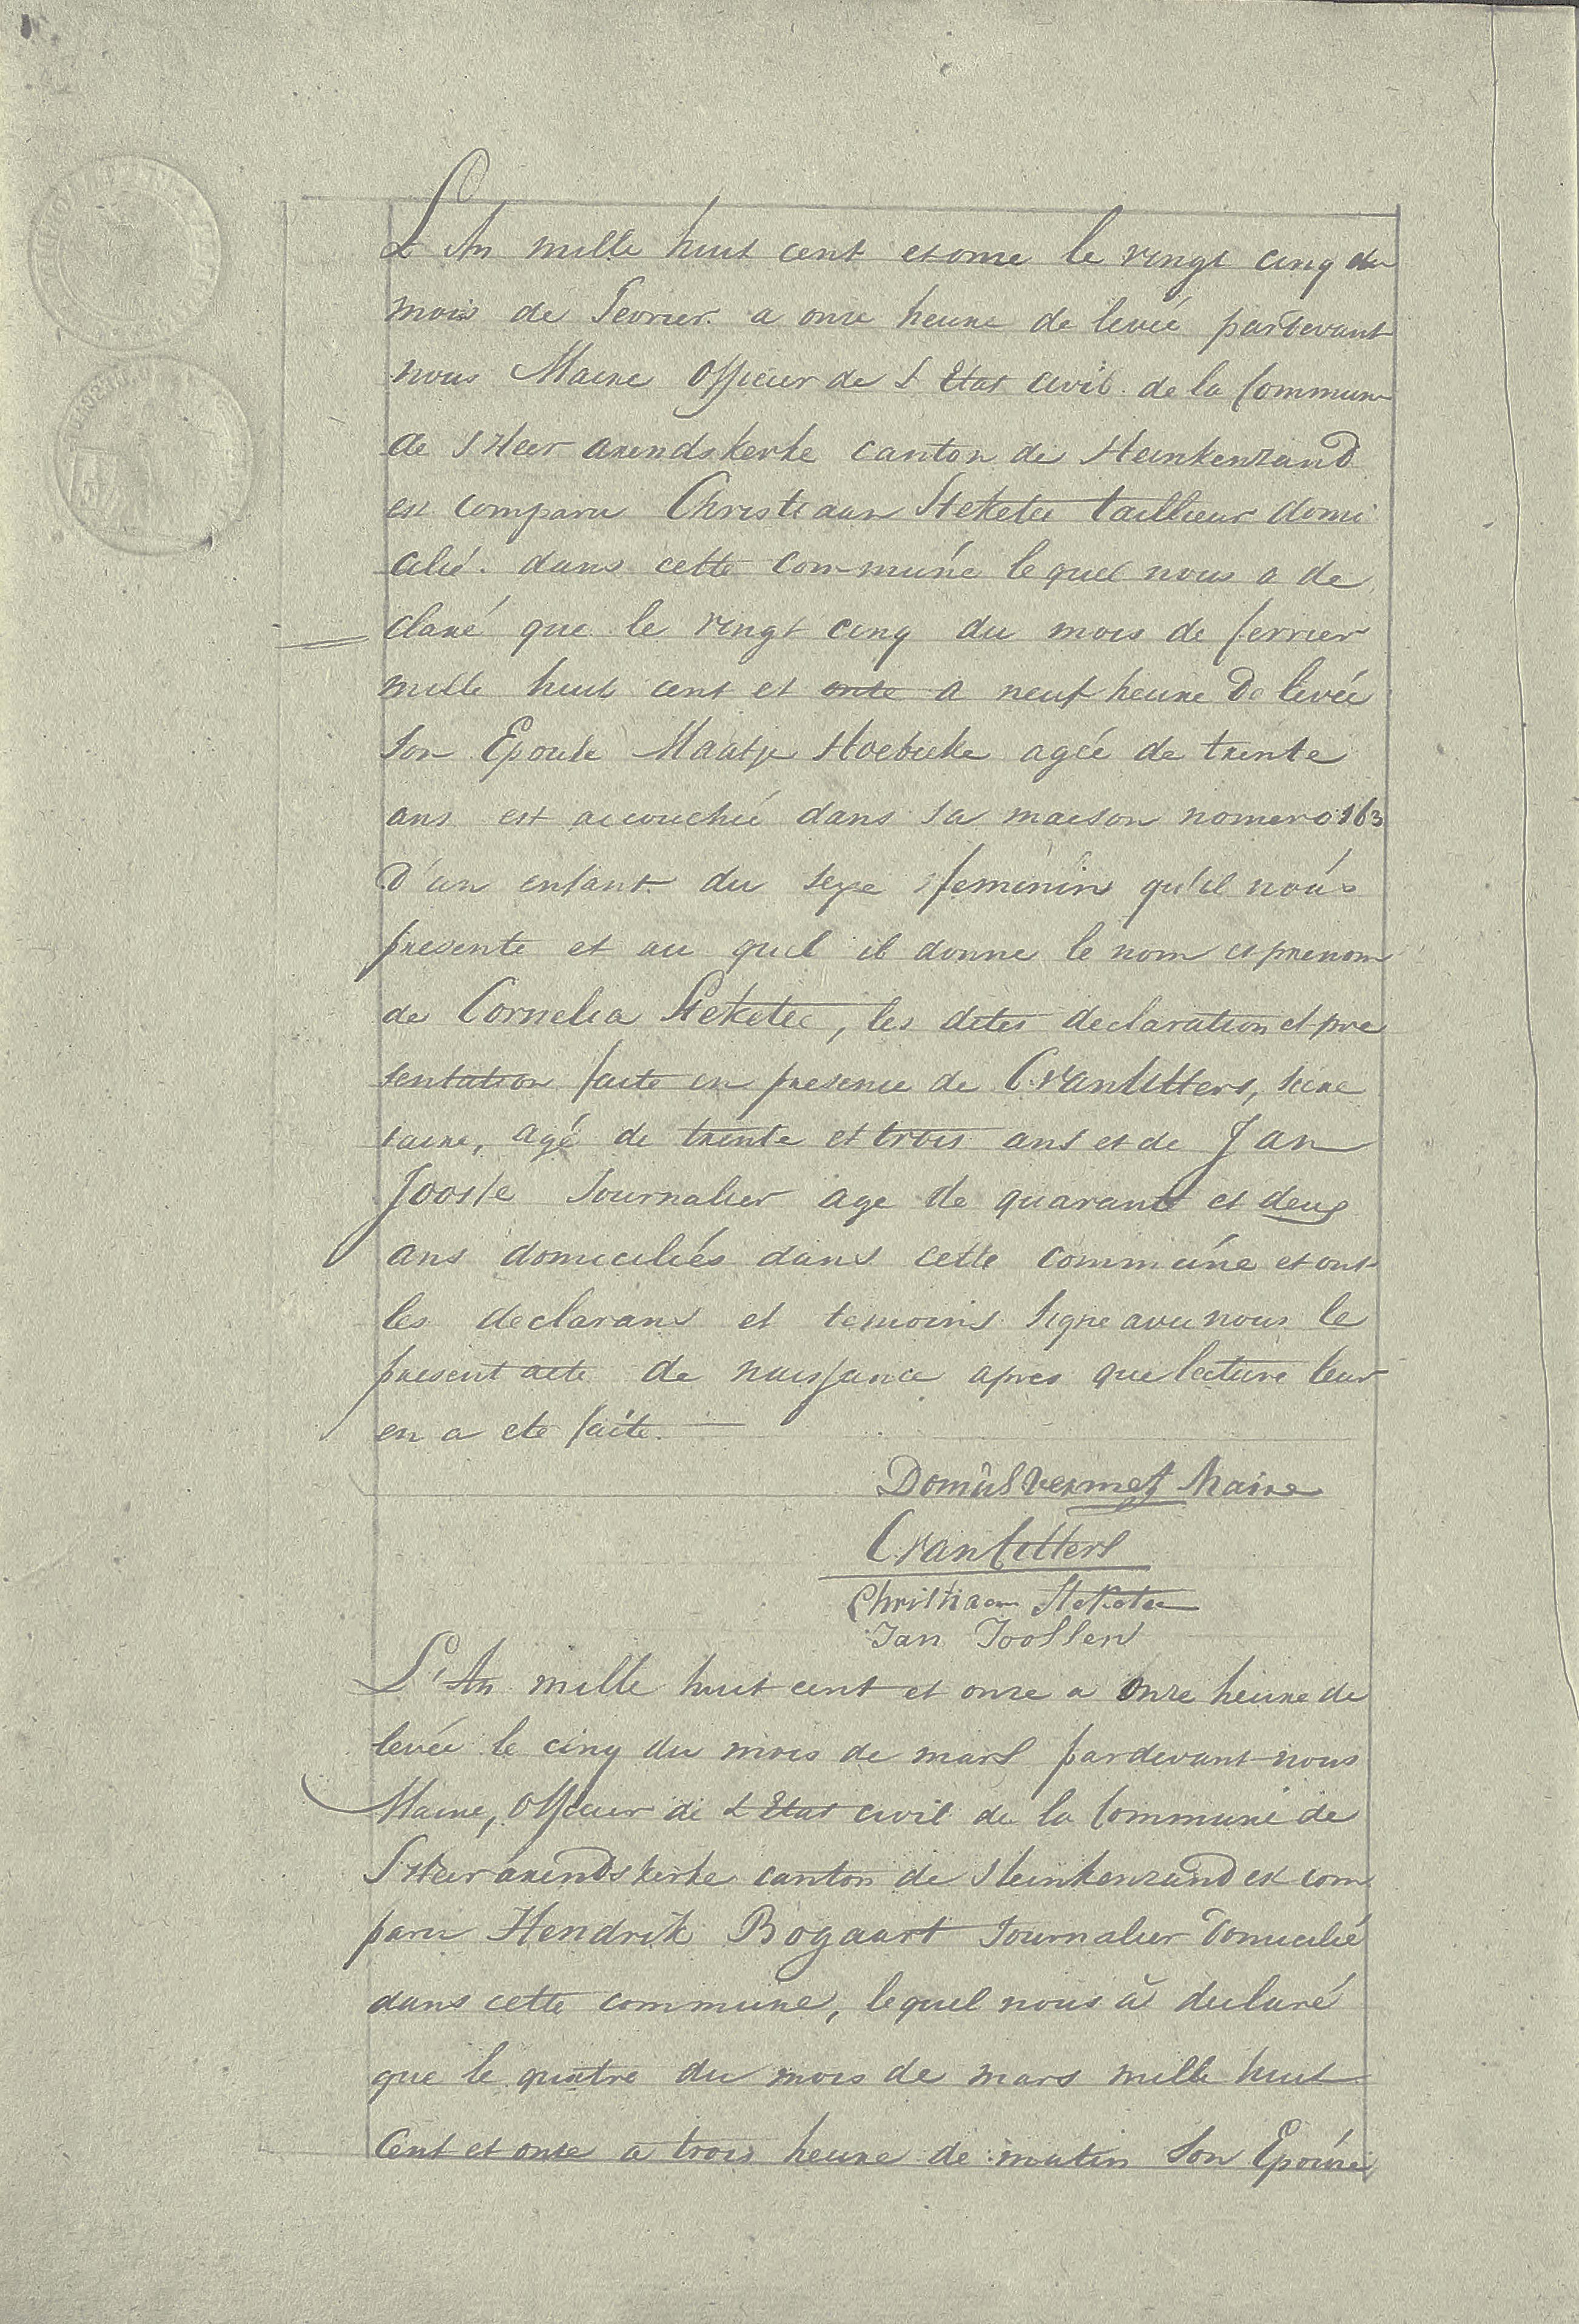 L'An mille huit cent et onze le vingt cinq du
mois de Fevrier a onze heure de levée pardevant
nous Maire Officier de L'Etat civil de la Commune
de S'Heer arendskerke canton de Heinkenzand
est comparu Christiaan Steketee taillieur domi
cilié dans cette commune lequel nous a de
claré que le vingt cinq du mois de fevrier
mille huit cent et onze a neuf heure de levée
son Epouse Maatje Hoebeke agée de trente
ans est accouchée dans sa maison nomero 163
D'un enfant du sexe feminin qu'il nous
presente et au quel il donne le nom et prenom
de Cornelia Steketee, les dites declaration et pre
sentation faite en presence de C. van Citters, secre
taire, agé de trente et trois ans et de Jan
Joosse Journalier age de quarante et deux
ans domiciliés dans cette commune et ont
les declarans et temoins signe avec nous le
present acte de naissance apres que lecture leur
en a ete faite.
Domus Vermet Maire
C van Citters
Christiaan Steketee
Jan Joossen
L'An mille huit cent et onze a onze heure de
levée le cinq du mois de mars pardevant nous
Maire, Officier de L'Etat civil de la Commune de
S'Heer arendskerke canton de Heinkenzand est com
paru Hendrik Bogaart Journalier domicilié
dans cette commune, lequel nous à declaré
que le quatre du mois de mars mille huit
Cent et onze a trois heure de matin son Epouse